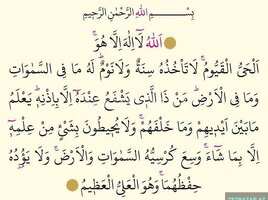 بِسْمِ اللهِ الرَّحْمٰنِ الرَّحِيمِ
اَللهُ لَٓا اِلٰهَ اِلَّا هُوَۚ
اَلْحَيُّ الْقَيُّومُۚ لَا تَأْخُذُهُ سِنَةٌ وَلَا نَوْمٌۜ لَهُ مَا فِى السَّمٰوَاتِ
وَمَا فِى الْاَرْضِۜ مَنْ ذَا الَّذِى يَشْفَعُ عِنْدَهُٓ اِلَّا بِاِذْنِهِۜ يَعْلَمُ
مَابَيْنَ اَيْدِيهِمْ وَمَا خَلْفَهُمْۚ وَلَا يُحِيطُونَ بِشَىْءٍ مِنْ عِلْمِهِٓ
اِلَّا بِمَا شَٓاءَۚ وَسِعَ كُرْسِيُّهُ السَّمٰوَاتِ وَالْاَرْضَۚ وَلَا يَؤُدُهُ
حِفْظُهُمَاۚ وَهُوَ الْعَلِىُّ الْعَظِيمُ